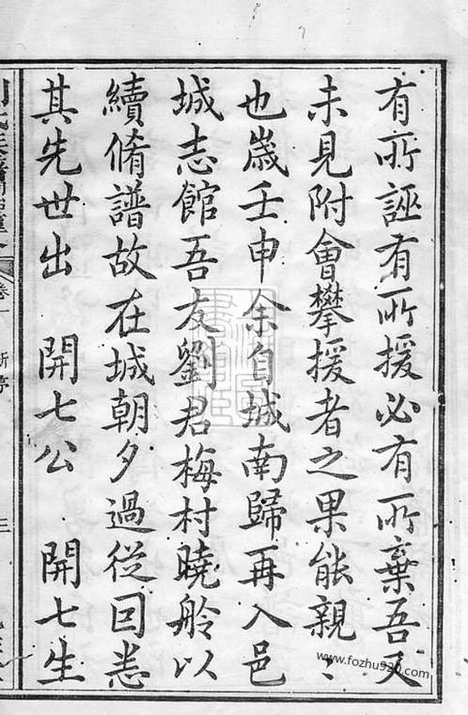 有所誣有所援必有所棄吾又
未見附會攀援者之果能親〻
也歲壬申余自城南歸再入邑
城志館吾友劉君梅村曉舲以
續脩譜故在城朝夕過從因悉
其先世出 開七公 開七生
卷一
三
www.fozhu920.com